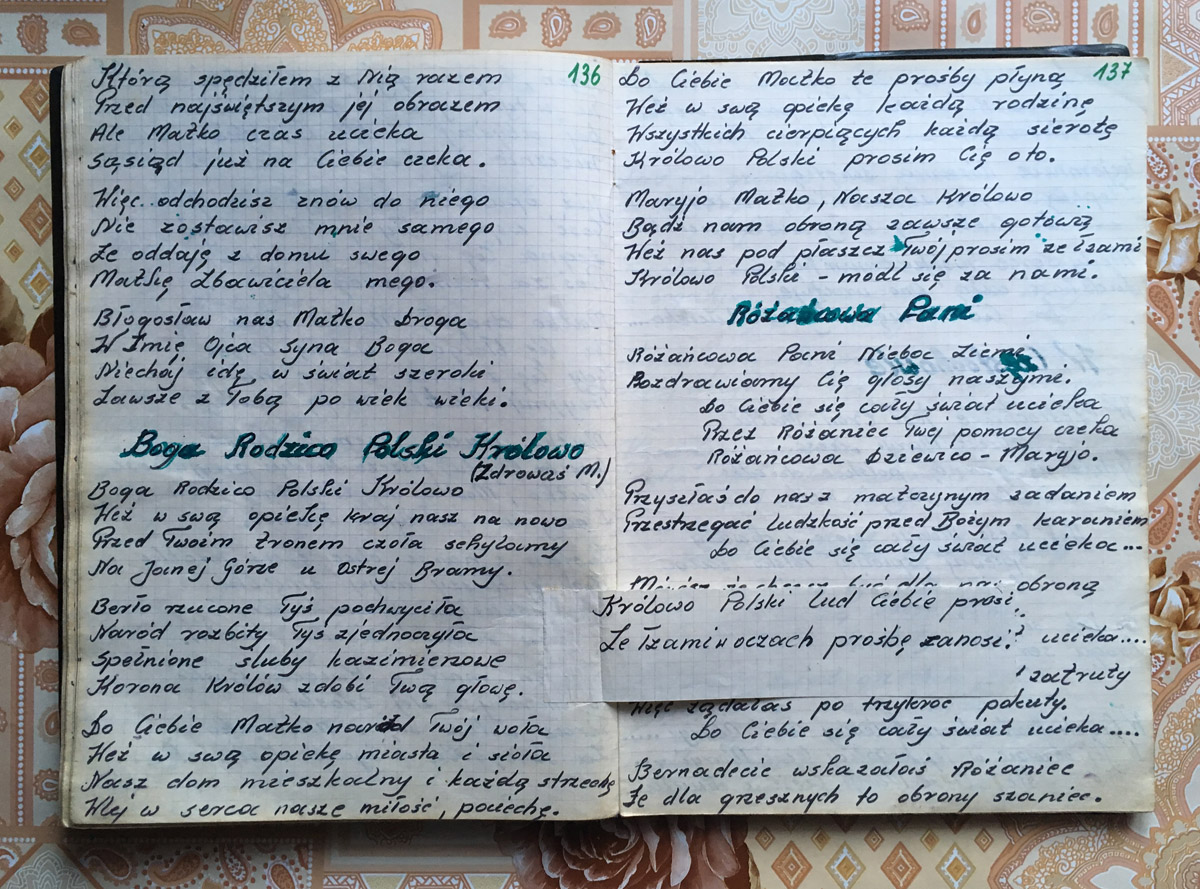 136
Którą spędziłem z Nią razem
Przed najświętszym jej obrazem
Ale Matko czas ucieka
Sąsiąd już na Ciebie czeka.
Więc odchodzisz znów do niego
Nie zostawisz mnie samego
Że oddaję z domu swego
Matkę Zbawiciela mego.
Błogosław nas Matko Droga
W Imię Ojca Syna Boga
Niechaj idę w świat szeroki
Zawsze z Tobą po wiek wieki.
Boga Rodzico Polski Królowo
(Zdrowaś M.)
Boga Rodzico Polski Królowo
Weź w swą opiekę kraj nasz na nowo
Przed Twoim tronem czoła schylamy
Na Jasnej Górze u Ostrej Bramy.
Berło rzucone Tyś pochwyciła
Naród rozbity Tyś zjednoczyła
Spełnione śluby kazimierzowe
Korona Królów zdobi Twą głowę.
Do Ciebie Matko naród Twój woła
Weź w swą opiekę miasta i sioła
Nasz dom mieszkalny i każdą strzechę
Wlej w serca nasze miłość, pociechę.
137
Do Ciebie Matko te prośby płyną
Weź w swą opiekę każdą rodzinę
Wszystkich cierpiących każdą sierotę
Królowo Polski prosim Cię oto.
Maryjo Matko, Nasza Królowo
Bądź nam obroną zawsze gotową
Weź nas pod płaszcz Twój prosim ze łzami
Królowo Polski - módl się za nami.
Różańcowa Pani
Różańcowa Pani Nieba Ziemi
Pozdrawiamy Cię głosy naszymi.
Do Ciebie się cały świat ucieka
Przez Różaniec Twej pomocy czeka
Różańcowa Dziewico - Maryjo.
Przyszłaś do nas z matczynym zadaniem
Przestrzegać ludzkość przed Bożym karaniem
Do Ciebie się cały świat ucieka...
obroną
Królowo Polski lud Ciebie prosi
Ze łzami w oczach prośbę zanosi! ucieka....
zatruty
Więc żądałaś po trzykroć pokuty.
Do Ciebie się cały świat ucieka....
Bernadecie wskazałaś Różaniec
Że dla grzesznych to obrony szaniec.